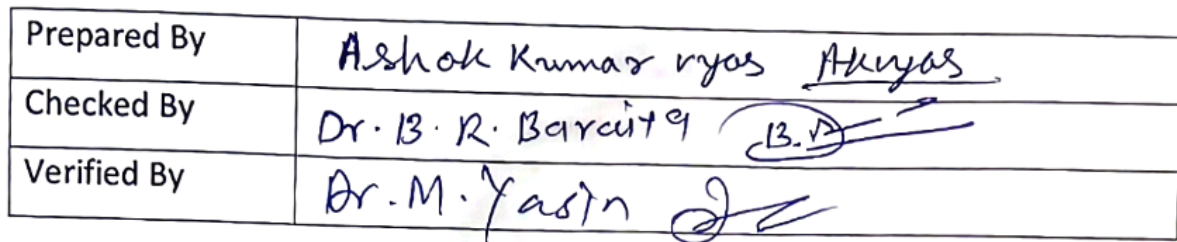 Prepared By Ashok Kumar vyas Akvyas
Checked By Dr. B. R. Baraita B.R
Verified By Dr. M. Yasin